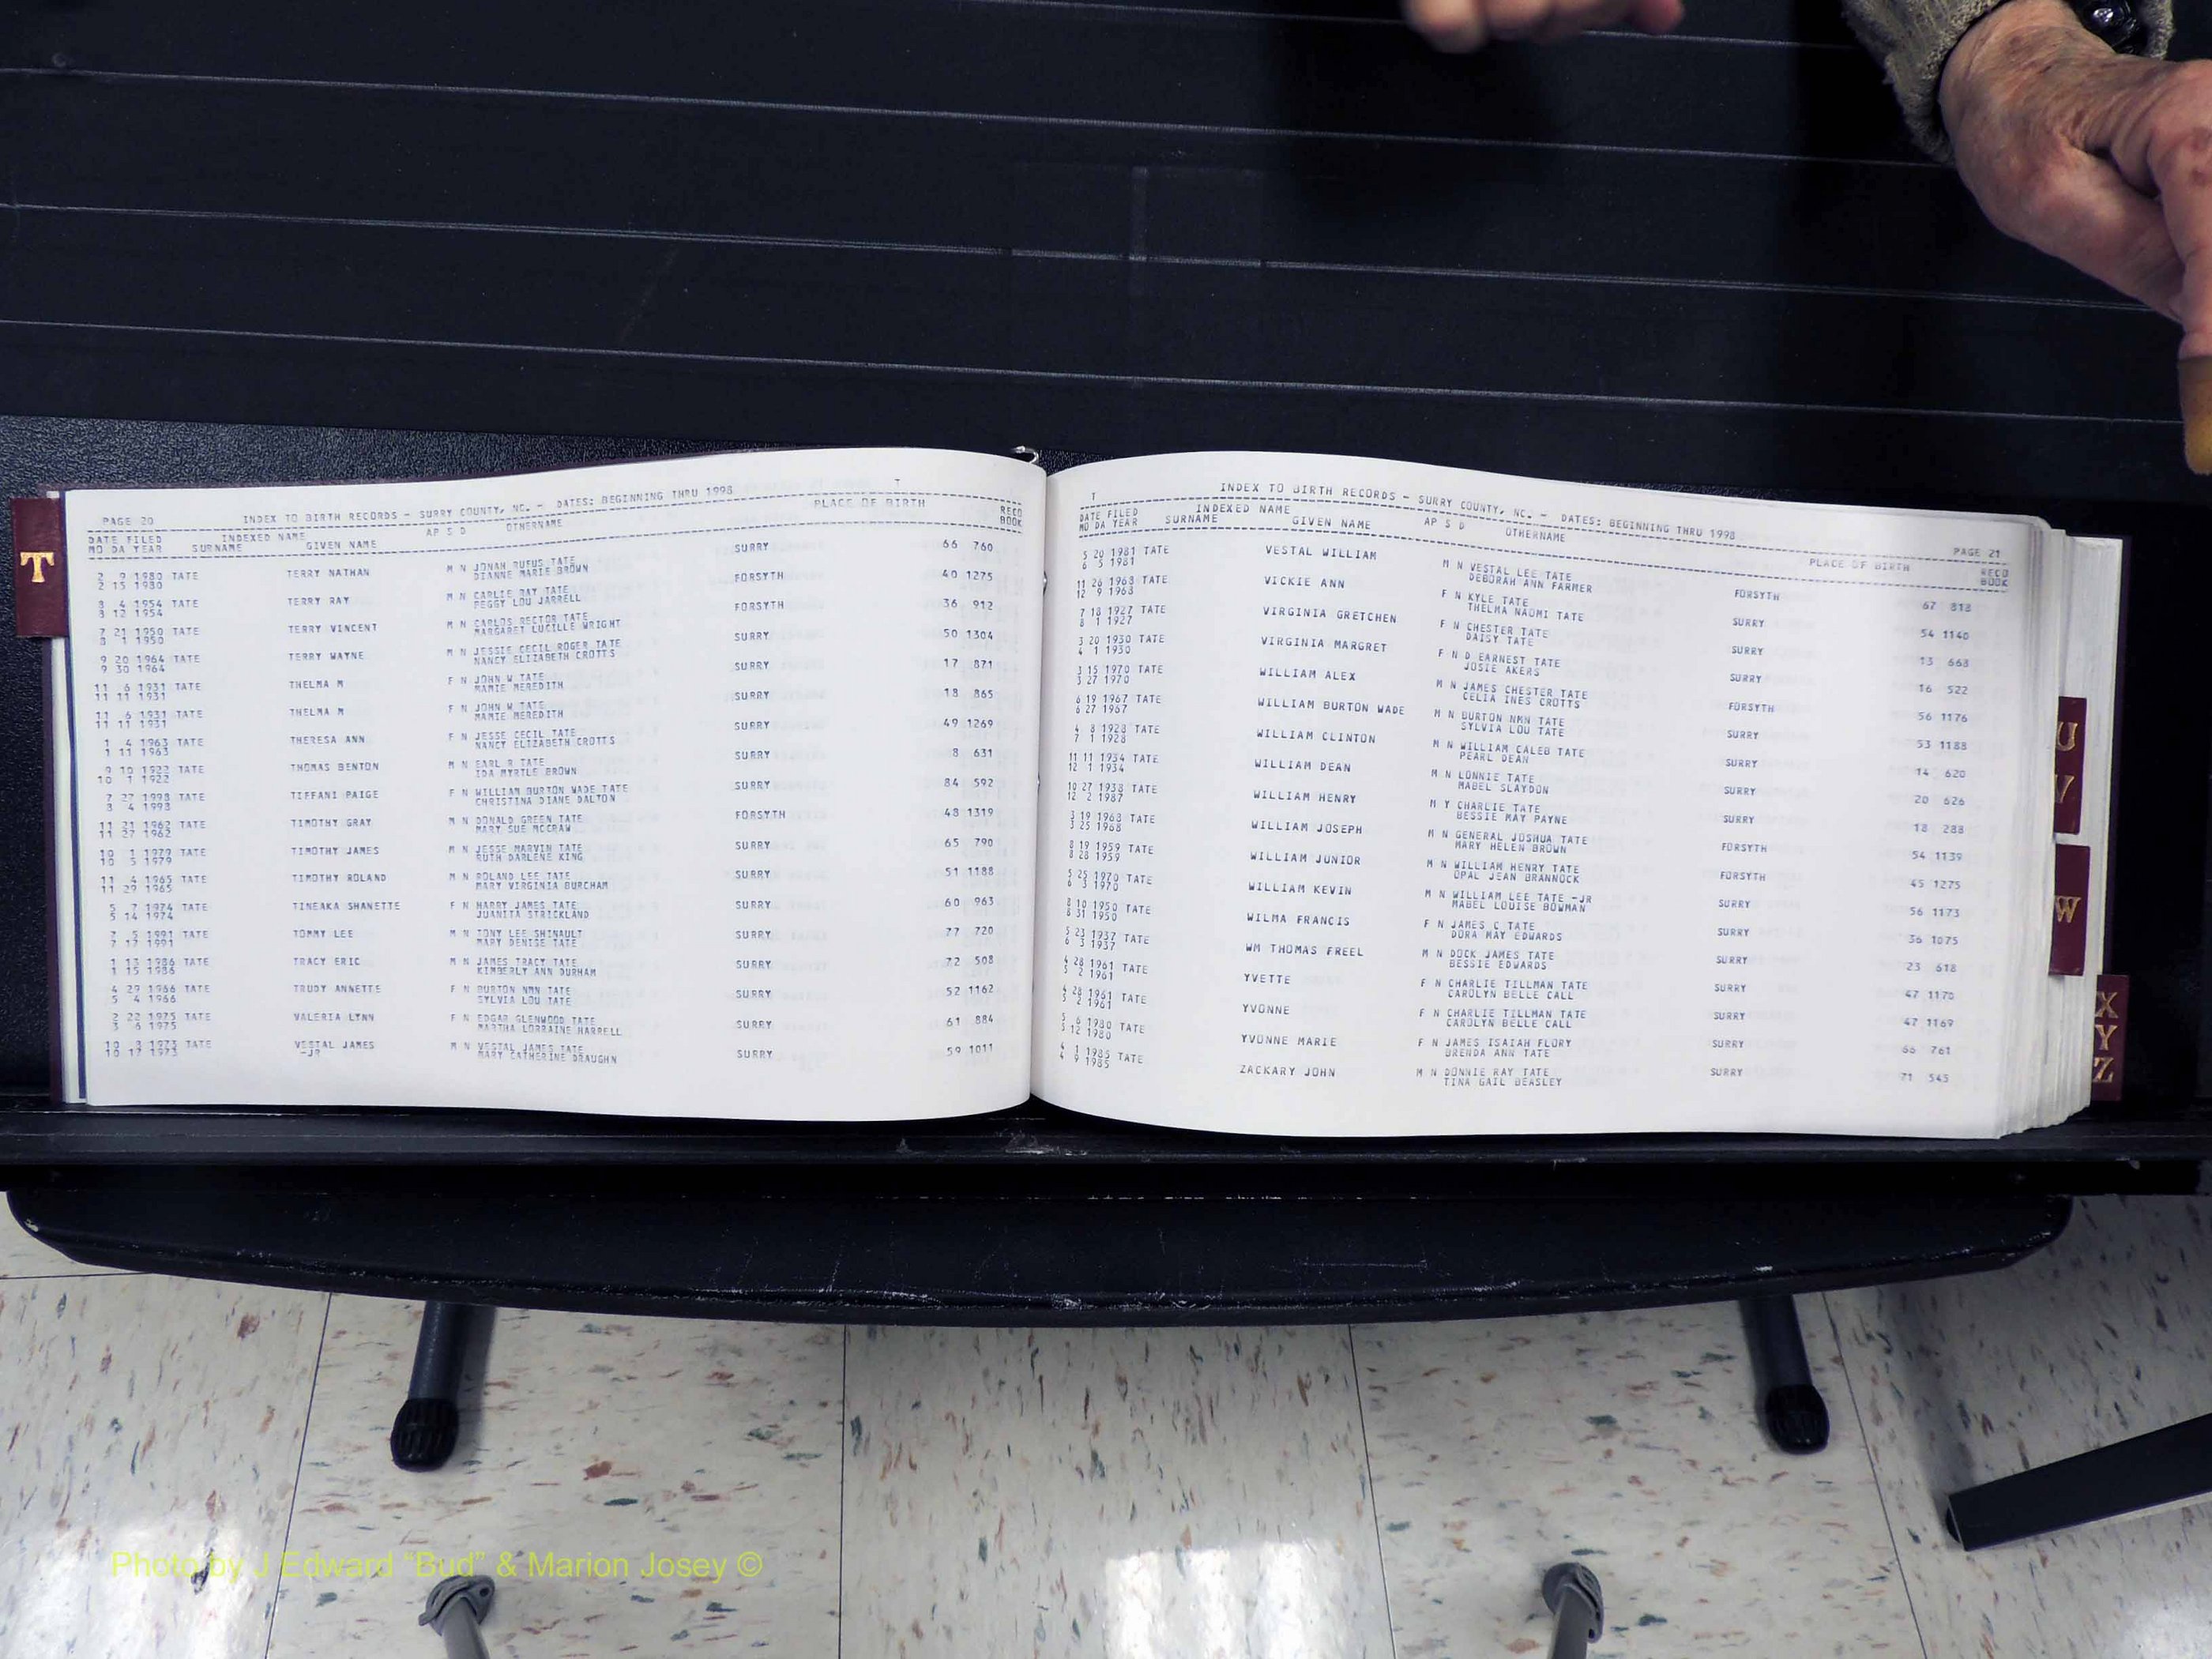 T
T
PAGE 20 INDEX TO BIRTH RECORDS - SURRY COUNTY, NC. - DATES: BEGINNING THRU 1998
DATE FILED INDEXED NAME AP S D OTHERNAME PLACE OF BIRTH RECD
MO DA YEAR SURNAME GIVEN NAME BOOK
2 9 1980 TATE TERRY NATHAN M N JONAH RUFUS TATE SURRY 66 760
2 15 1980 DIANNE MARIE BROWN
8 4 1954 TATE TERRY RAY M N CARLIE RAY TATE FORSYTH 40 1275
8 12 1954 PEGGY LOU JARRELL
7 21 1950 TATE TERRY VINCENT M N CARLOS RECTOR TATE FORSYTH 36 912
8 1 1950 MARGARET LUCILLE WRIGHT
9 20 1964 TATE TERRY WAYNE M N JESSIE CECIL ROGER TATE SURRY 50 1304
9 30 1964 NANCY ELIZABETH CROTTS
11 6 1931 TATE THELMA M F N JOHN W TATE SURRY 17 871
11 11 1931 MAMIE MEREDITH
11 6 1931 TATE THELMA M F N JOHN W TATE SURRY 18 865
11 11 1931 MAMIE MEREDITH
1 4 1963 TATE THERESA ANN F N JESSE CECIL TATE SURRY 49 1269
1 11 1963 NANCY ELIZABETH CROTTS
9 10 1922 TATE THOMAS BENTON M N EARL R TATE SURRY 8 631
10 1 1922 IDA MYRTLE BROWN
7 27 1998 TATE TIFFANI PAIGE F N WILLIAM BURTON WADE TATE SURRY 84 592
8 4 1998 CHRISTINA DIANE DALTON
11 21 1962 TATE TIMOTHY GRAY M N DONALD GREEN TATE FORSYTH 48 1319
11 27 1962 MARY SUE MCCRAW
10 1 1979 TATE TIMOTHY JAMES M N JESSE MARVIN TATE SURRY 65 790
10 5 1979 RUTH DARLENE KING
11 4 1965 TATE TIMOTHY ROLAND M N ROLAND LEE TATE SURRY 51 1188
11 29 1965 MARY VIRGINIA BURCHAM
5 7 1974 TATE TINEAKA SHANETTE F N HARRY JAMES TATE SURRY 60 963
5 14 1974 JUANITA STRICKLAND
7 5 1991 TATE TOMMY LEE M N TONY LEE SHINAULT SURRY 77 720
7 17 1991 MARY DENISE TATE
1 13 1986 TATE TRACY ERIC M N JAMES TRACY TATE SURRY 72 508
1 15 1986 KIMBERLY ANN DURHAM
4 29 1966 TATE TRUDY ANNETTE F N BURTON NMN TATE SURRY 52 1162
5 4 1966 SYLVIA LOU TATE
2 22 1975 TATE VALERIA LYNN F N EDGAR GLENWOOD TATE SURRY 61 884
3 6 1975 MARTHA LORRAINE HARRELL
10 8 1973 TATE VESTAL JAMES M N VESTAL JAMES TATE SURRY 59 1011
10 17 1973 -JR MARY CATHERINE DRAUGHN
T INDEX TO BIRTH RECORDS - SURRY COUNTY, NC. - DATES: BEGINNING THRU 1998 PAGE 21
DATE FILED INDEXED NAME AP S D OTHERNAME PLACE OF BIRTH RECD
MO DA YEAR SURNAME GIVEN NAME BOOK
5 20 1981 TATE VESTAL WILLIAM M N VESTAL LEE TATE FORSYTH 67 818
6 5 1981 DEBORAH ANN FARMER
11 26 1968 TATE VICKIE ANN F N KYLE TATE SURRY 54 1140
12 9 1968 THELMA NAOMI TATE
7 18 1927 TATE VIRGINIA GRETCHEN F N CHESTER TATE SURRY 13 668
8 1 1927 DAISY TATE
3 20 1930 TATE VIRGINIA MARGRET F N D EARNEST TATE SURRY 16 522
4 1 1930 JOSIE AKERS
3 15 1970 TATE WILLIAM ALEX M N JAMES CHESTER TATE FORSYTH 56 1176
3 27 1970 CELIA INES CROTTS
6 19 1967 TATE WILLIAM BURTON WADE M N BURTON NMN TATE SURRY 53 1188
6 27 1967 SYLVIA LOU TATE
4 8 1928 TATE WILLIAM CLINTON M N WILLIAM CALEB TATE SURRY 14 620
7 1 1928 PEARL DEAN
11 11 1934 TATE WILLIAM DEAN M N LONNIE TATE SURRY 20 626
12 1 1934 MABEL SLAYDON
10 27 1938 TATE WILLIAM HENRY M Y CHARLIE TATE SURRY 18 288
12 2 1987 BESSIE MAY PAYNE
3 19 1968 TATE WILLIAM JOSEPH M N GENERAL JOSHUA TATE FORSYTH 54 1139
3 25 1968 MARY HELEN BROWN
8 19 1959 TATE WILLIAM JUNIOR M N WILLIAM HENRY TATE FORSYTH 45 1275
8 28 1959 OPAL JEAN BRANNOCK
5 25 1970 TATE WILLIAM KEVIN M N WILLIAM LEE TATE -JR SURRY 56 1173
6 3 1970 MABEL LOUISE BOWMAN
8 10 1950 TATE WILMA FRANCIS F N JAMES C TATE SURRY 36 1075
8 31 1950 DORA MAY EDWARDS
5 23 1937 TATE WM THOMAS FREEL M N DOCK JAMES TATE SURRY 23 618
6 3 1937 BESSIE EDWARDS
4 28 1961 TATE YVETTE F N CHARLIE TILLMAN TATE SURRY 47 1170
5 2 1961 CAROLYN BELLE CALL
4 28 1961 TATE YVONNE F N CHARLIE TILLMAN TATE SURRY 47 1169
5 2 1961 CAROLYN BELLE CALL
5 6 1980 TATE YVONNE MARIE F N JAMES ISAIAH FLORY SURRY 66 761
5 12 1980 BRENDA ANN TATE
4 1 1985 TATE ZACKARY JOHN M N DONNIE RAY TATE SURRY 71 545
4 9 1985 TINA GAIL BEASLEY
U
V
W
X
Y
Z
Photo by J Edward “Bud” & Marion Josey ©